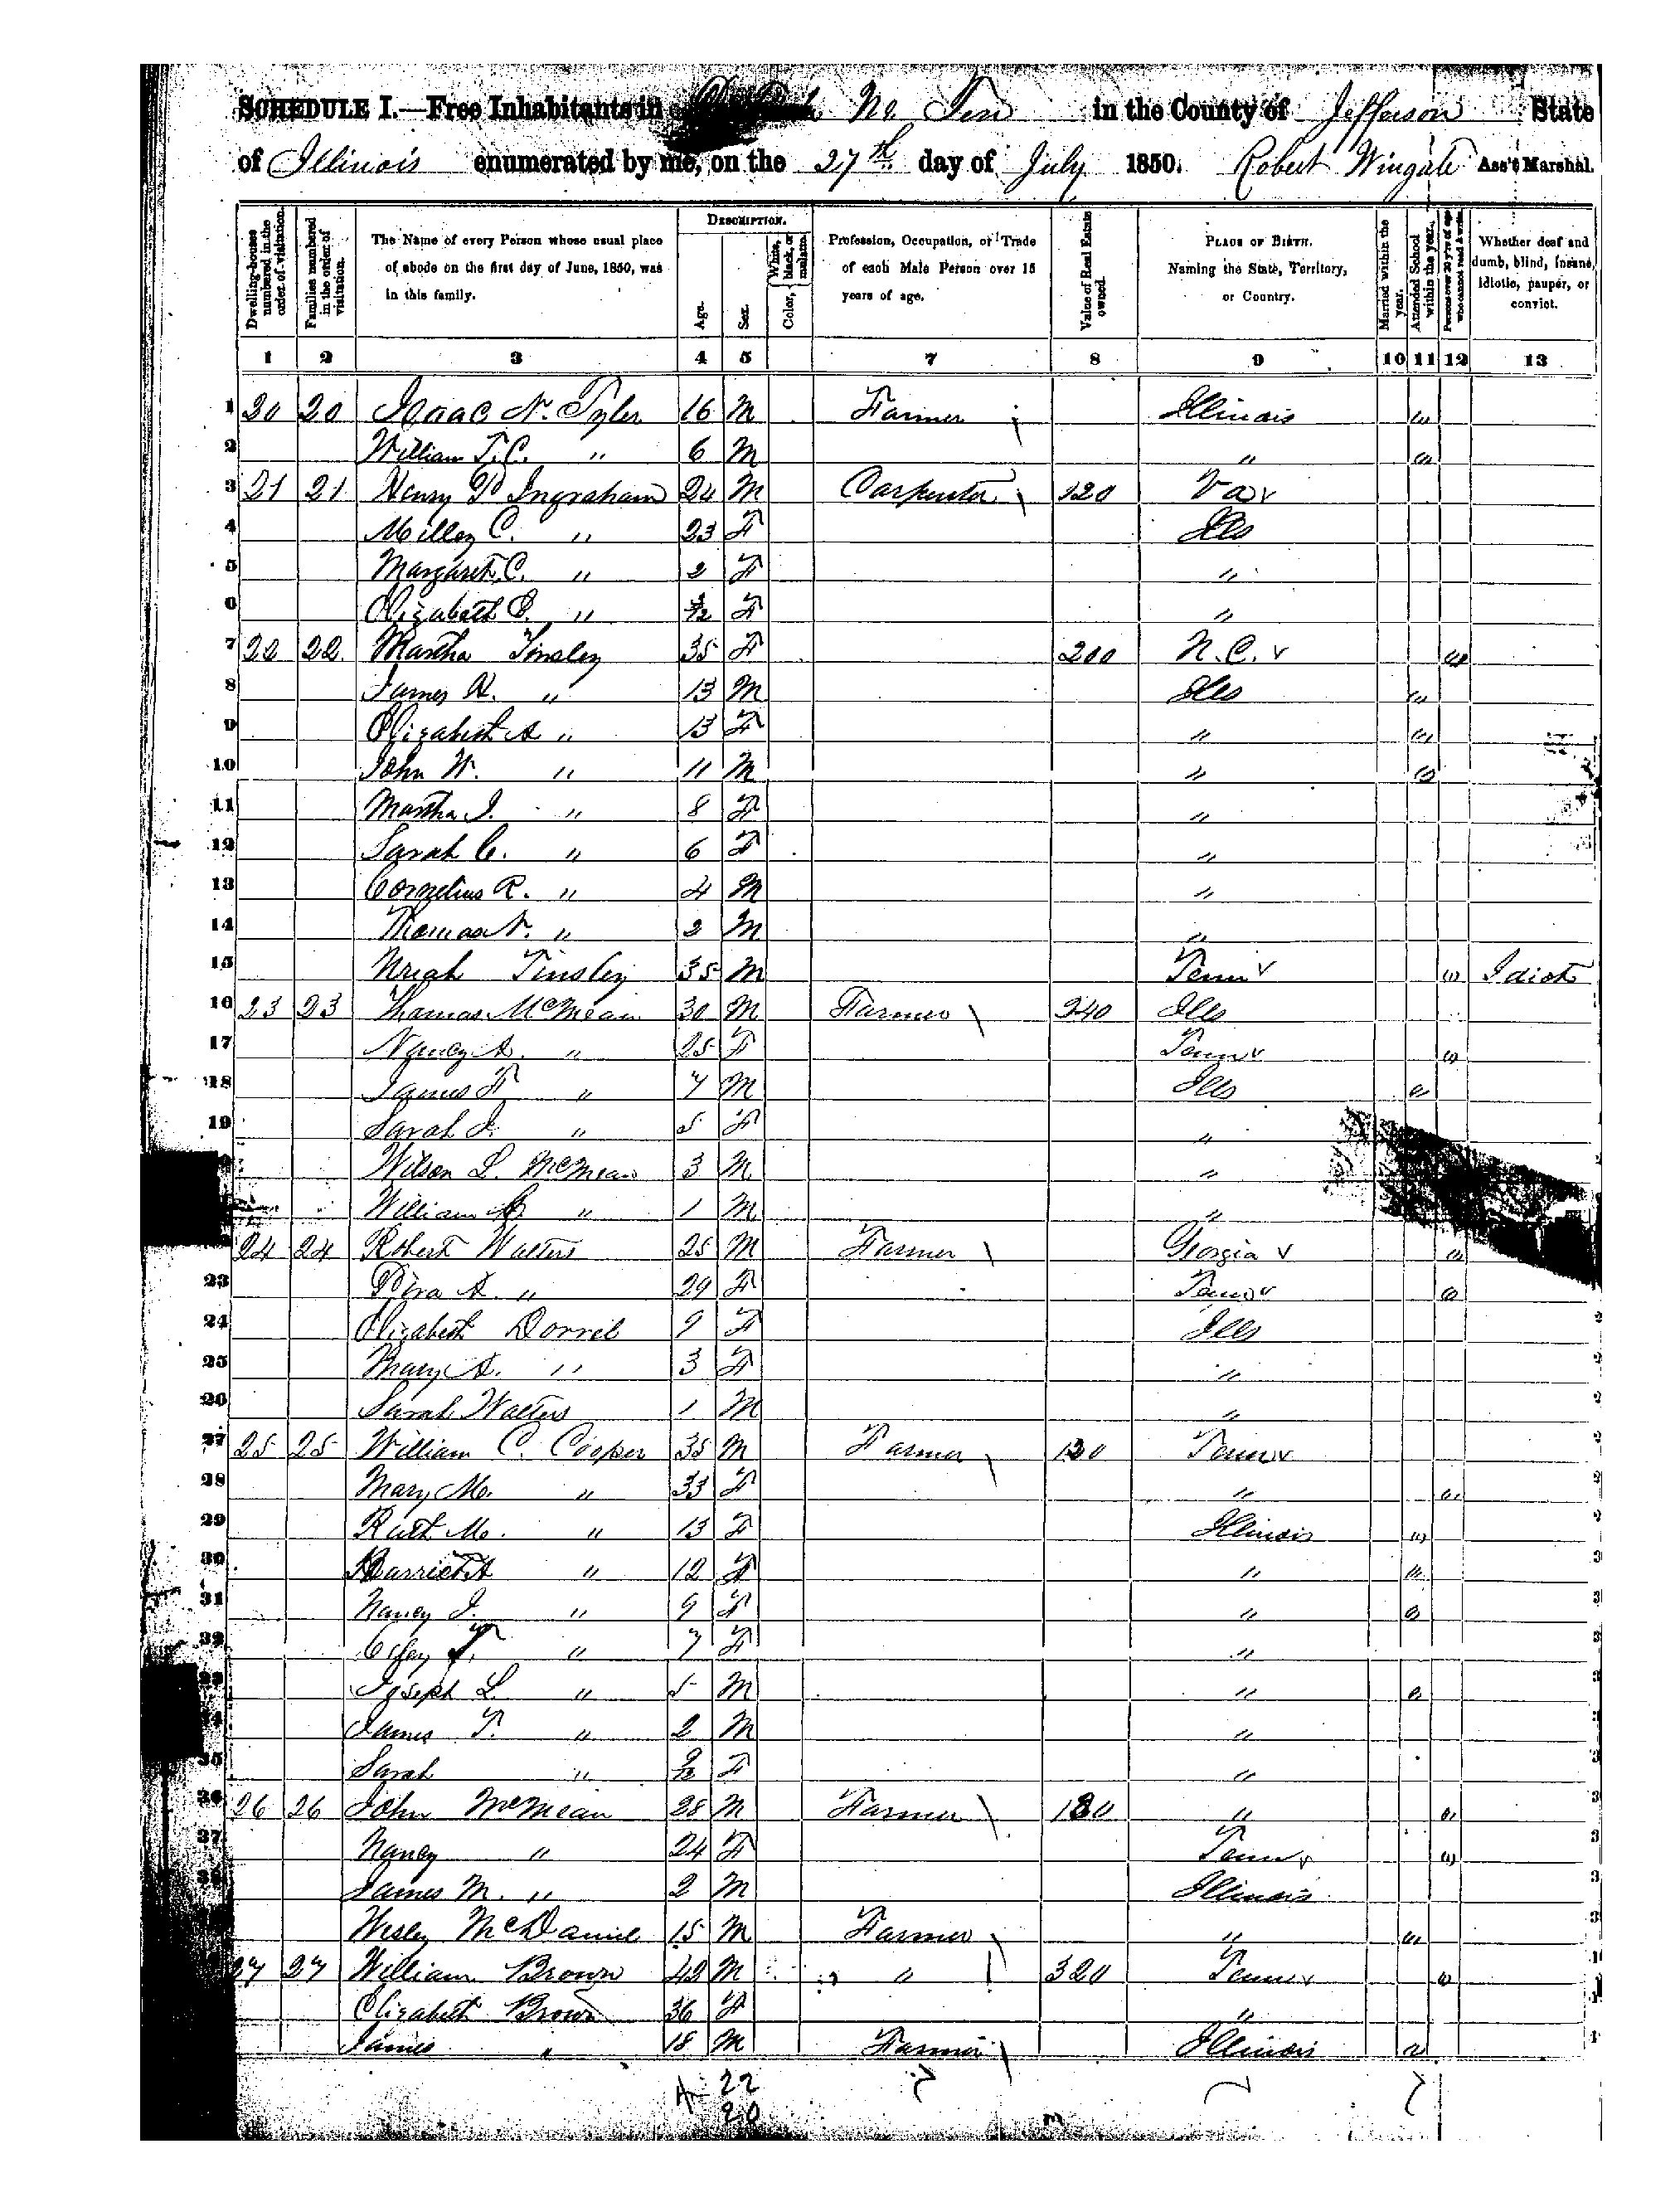 SCHEDULE I.—Free Inhabitants in No Ten in the County of Jefferson State
of Illinois enumerated by me, on the 27th day of July 1850. Robert Wingate Ass't Marshal.
Dwelling-houses numbered in the order of visitation.
Families numbered in the order of visitation.
The Name of every Person whose usual place of abode on the first day of June, 1850, was in this family.
DESCRIPTION.
Age.
Sex.
Color, White, black, or mulatto.
Profession, Occupation, or Trade of each Male Person over 15 years of age.
Value of Real Estate owned.
PLACE OF BIRTH. Naming the State, Territory, or Country.
Married within the year.
Attended School within the year.
Persons over 20 y'rs of age who cannot read & write.
Whether deaf and dumb, blind, insane, idiotic, pauper, or convict.
1 2 3 4 5 7 8 9 10 11 12 13
1 20 20 Isaac N. Tyler 16 M Farmer Illinois
2 William T. C. " 6 M "
3 21 21 Henry P Ingraham 24 M Carpenter 120 Va v
4 Milley C. " 23 F Ills
5 Margaret C. " 2 F "
6 Elizabeth " F "
7 22 22 Martha Tinsley 35 F 200 N.C. v
8 James " 13 M Ills
9 Elizabeth A " 13 F "
10 John W. " 11 M "
11 Martha J. " 8 F "
12 Sarah C. " 6 F "
13 Cornelius R. " 4 M "
14 Thomas N. " 2 M "
15 Uriah Tinsley 35 M Tenn v Idiot
16 23 23 Thomas McMean 30 M Farmer 240 Ills
17 Nancy A. " 25 F Tenn v
18 James F " 7 M Ills
19 Sarah J. " 5 F "
Wilson L. McMean 3 M "
William " 1 M "
24 24 Robert Walters 25 M Farmer Georgia v
23 A. " 29 F Tenn v
24 Elizabeth Dorril 9 F Ills
25 Mary A. " 3 F "
26 Sarah Walters 1 M "
27 25 25 William C. Cooper 35 M Farmer 120 Tenn v
28 Mary M. " 33 F "
29 Ruth M. " 13 F Illinois
30 Harriet A " 12 F "
31 Nancy J. " 9 F "
32 " 7 F "
33 Joseph L. " 5 M "
34 James T. " 2 M "
35 Sarah " F "
36 26 26 John McMean 28 M Farmer "
37 Nancy " 24 F Tenn v
38 James M. " 2 M Illinois
Wesley McDaniel 15 M Farmer "
27 27 William Brown 42 M " 320 Tenn v
Elizabeth Brown 36 F "
James " 18 M Farmer Illinois
22
20